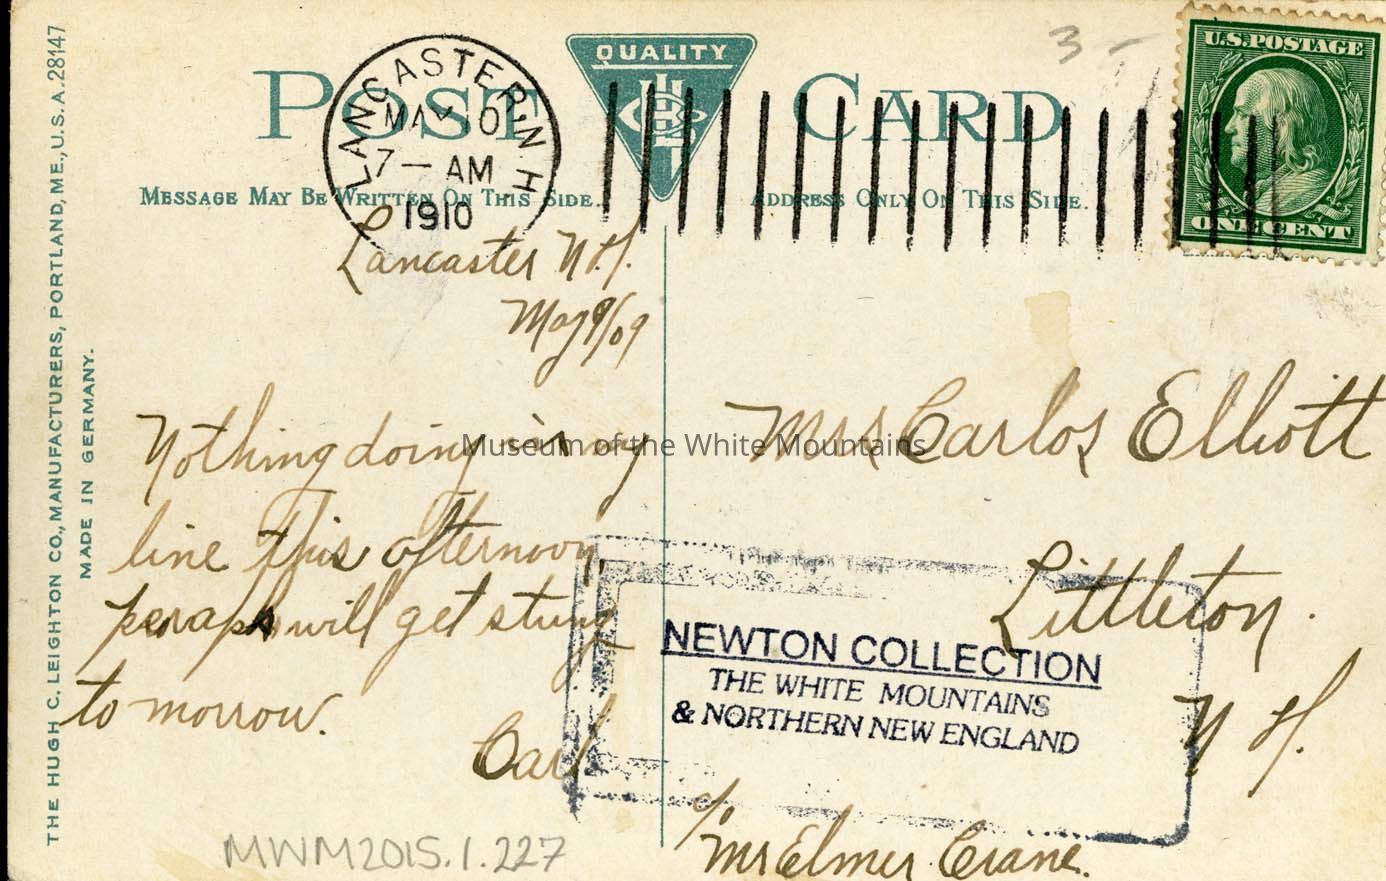 THE HUGH C. LEIGHTON CO., MANUFACTURERS, PORTLAND, ME., U.S.A. 28147
MADE IN GERMANY.
QUALITY
POST CARD
MESSAGE MAY BE WRITTEN ON THIS SIDE.
ADDRESS ONLY ON THIS SIDE.
LANCASTER, N.H.
MAY 10
7 — AM
1910
3 –
U.S. POSTAGE
ONE CENT
Lancaster N.H.
May 9/09
Nothing doing in my
line this afternoon,
peraphs will get stung
to morrow.
Carl
Mrs Carlos Elliott
Littleton.
N H.
c/o
Mr Elmer Crane.
NEWTON COLLECTION
THE WHITE MOUNTAINS
& NORTHERN NEW ENGLAND
MWM2015.1.227
Museum of the White Mountains